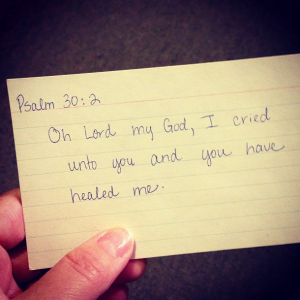 Psalm 30:2
Oh Lord my God, I cried
unto you and you have
healed me.